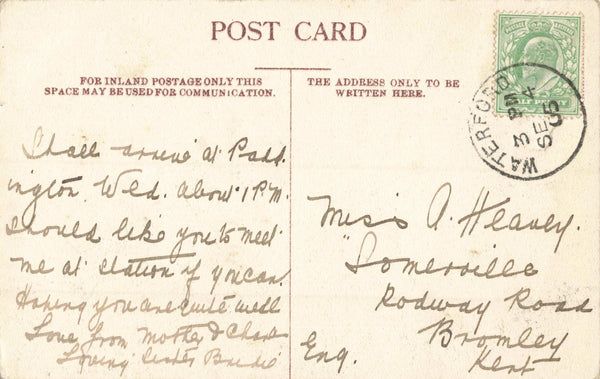 POST CARD
FOR INLAND POSTAGE ONLY THIS
SPACE MAY BE USED FOR COMMUNICATION.
THE ADDRESS ONLY TO BE
WRITTEN HERE.
HALF PENNY
WATERFORD
3 PM
SE 4
05
Shall arrive at Padd
ington. Wed. about 1 P.M.
Should like you to meet
me at station if you can.
Hoping you are quite well
Love from Mother &
Loving Sister Birdie
Miss A. Heavey.
"Somerville
Rodway Road
Bromley
Kent
Eng.